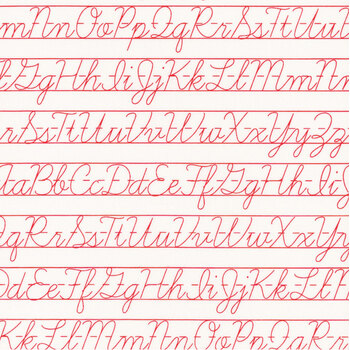 mNnOoPpQqRrSsTtUu
FfGgHhIiJjKkLlMmNn
rSsTtUuVvWwXxYyZz
AaBbCcDdEeFfGgHhIiJ
QqRrSsTtUuVvWwXx
DdEeFfGgHhIiJjKkLl
KkLlMmNnOoPpQqRr